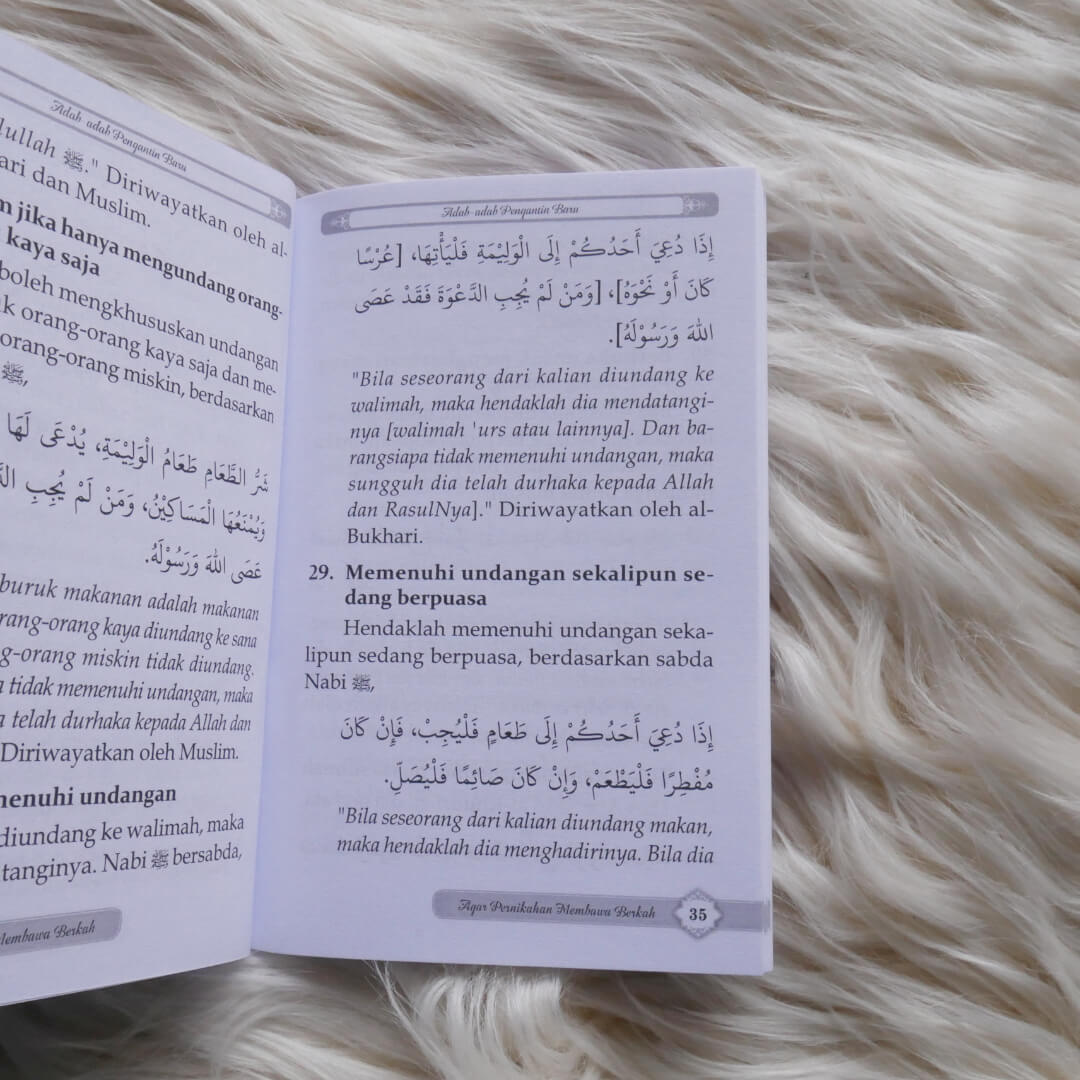 Adab-adab Pengantin Baru
ﷺ." Diriwayatkan oleh al-
dan Muslim.
jika hanya mengundang orang-
kaya saja
boleh mengkhususkan undangan
orang-orang kaya saja dan me-
orang-orang miskin, berdasarkan
ﷺ,
شَرُّ الطَّعَامِ طَعَامُ الْوَلِيْمَةِ، يُدْعَى لَهَا
وَيُمْنَعُهَا الْمَسَاكِيْنُ، وَمَنْ لَمْ يُجِبِ
عَصَى اللهَ وَرَسُوْلَهُ.
buruk makanan adalah makanan
orang-orang kaya diundang ke sana
miskin tidak diundang.
tidak memenuhi undangan, maka
telah durhaka kepada Allah dan
Diriwayatkan oleh Muslim.
undangan
diundang ke walimah, maka
Nabi ﷺ bersabda,
Membawa Berkah
Adab-adab Pengantin Baru
إِذَا دُعِيَ أَحَدُكُمْ إِلَى الْوَلِيْمَةِ فَلْيَأْتِهَا، [عُرْسًا
كَانَ أَوْ نَحْوَهُ]، [وَمَنْ لَمْ يُجِبِ الدَّعْوَةَ فَقَدْ عَصَى
اللهَ وَرَسُوْلَهُ].
"Bila seseorang dari kalian diundang ke
walimah, maka hendaklah dia mendatangi-
nya [walimah 'urs atau lainnya]. Dan ba-
rangsiapa tidak memenuhi undangan, maka
sungguh dia telah durhaka kepada Allah
dan RasulNya]." Diriwayatkan oleh al-
Bukhari.
29. Memenuhi undangan sekalipun se-
dang berpuasa
Hendaklah memenuhi undangan seka-
lipun sedang berpuasa, berdasarkan sabda
Nabi ﷺ,
إِذَا دُعِيَ أَحَدُكُمْ إِلَى طَعَامٍ فَلْيُجِبْ، فَإِنْ كَانَ
مُفْطِرًا فَلْيَطْعَمْ، وَإِنْ كَانَ صَائِمًا فَلْيُصَلِّ.
"Bila seseorang dari kalian diundang makan,
maka hendaklah dia menghadirinya. Bila dia
Agar Pernikahan Membawa Berkah 35